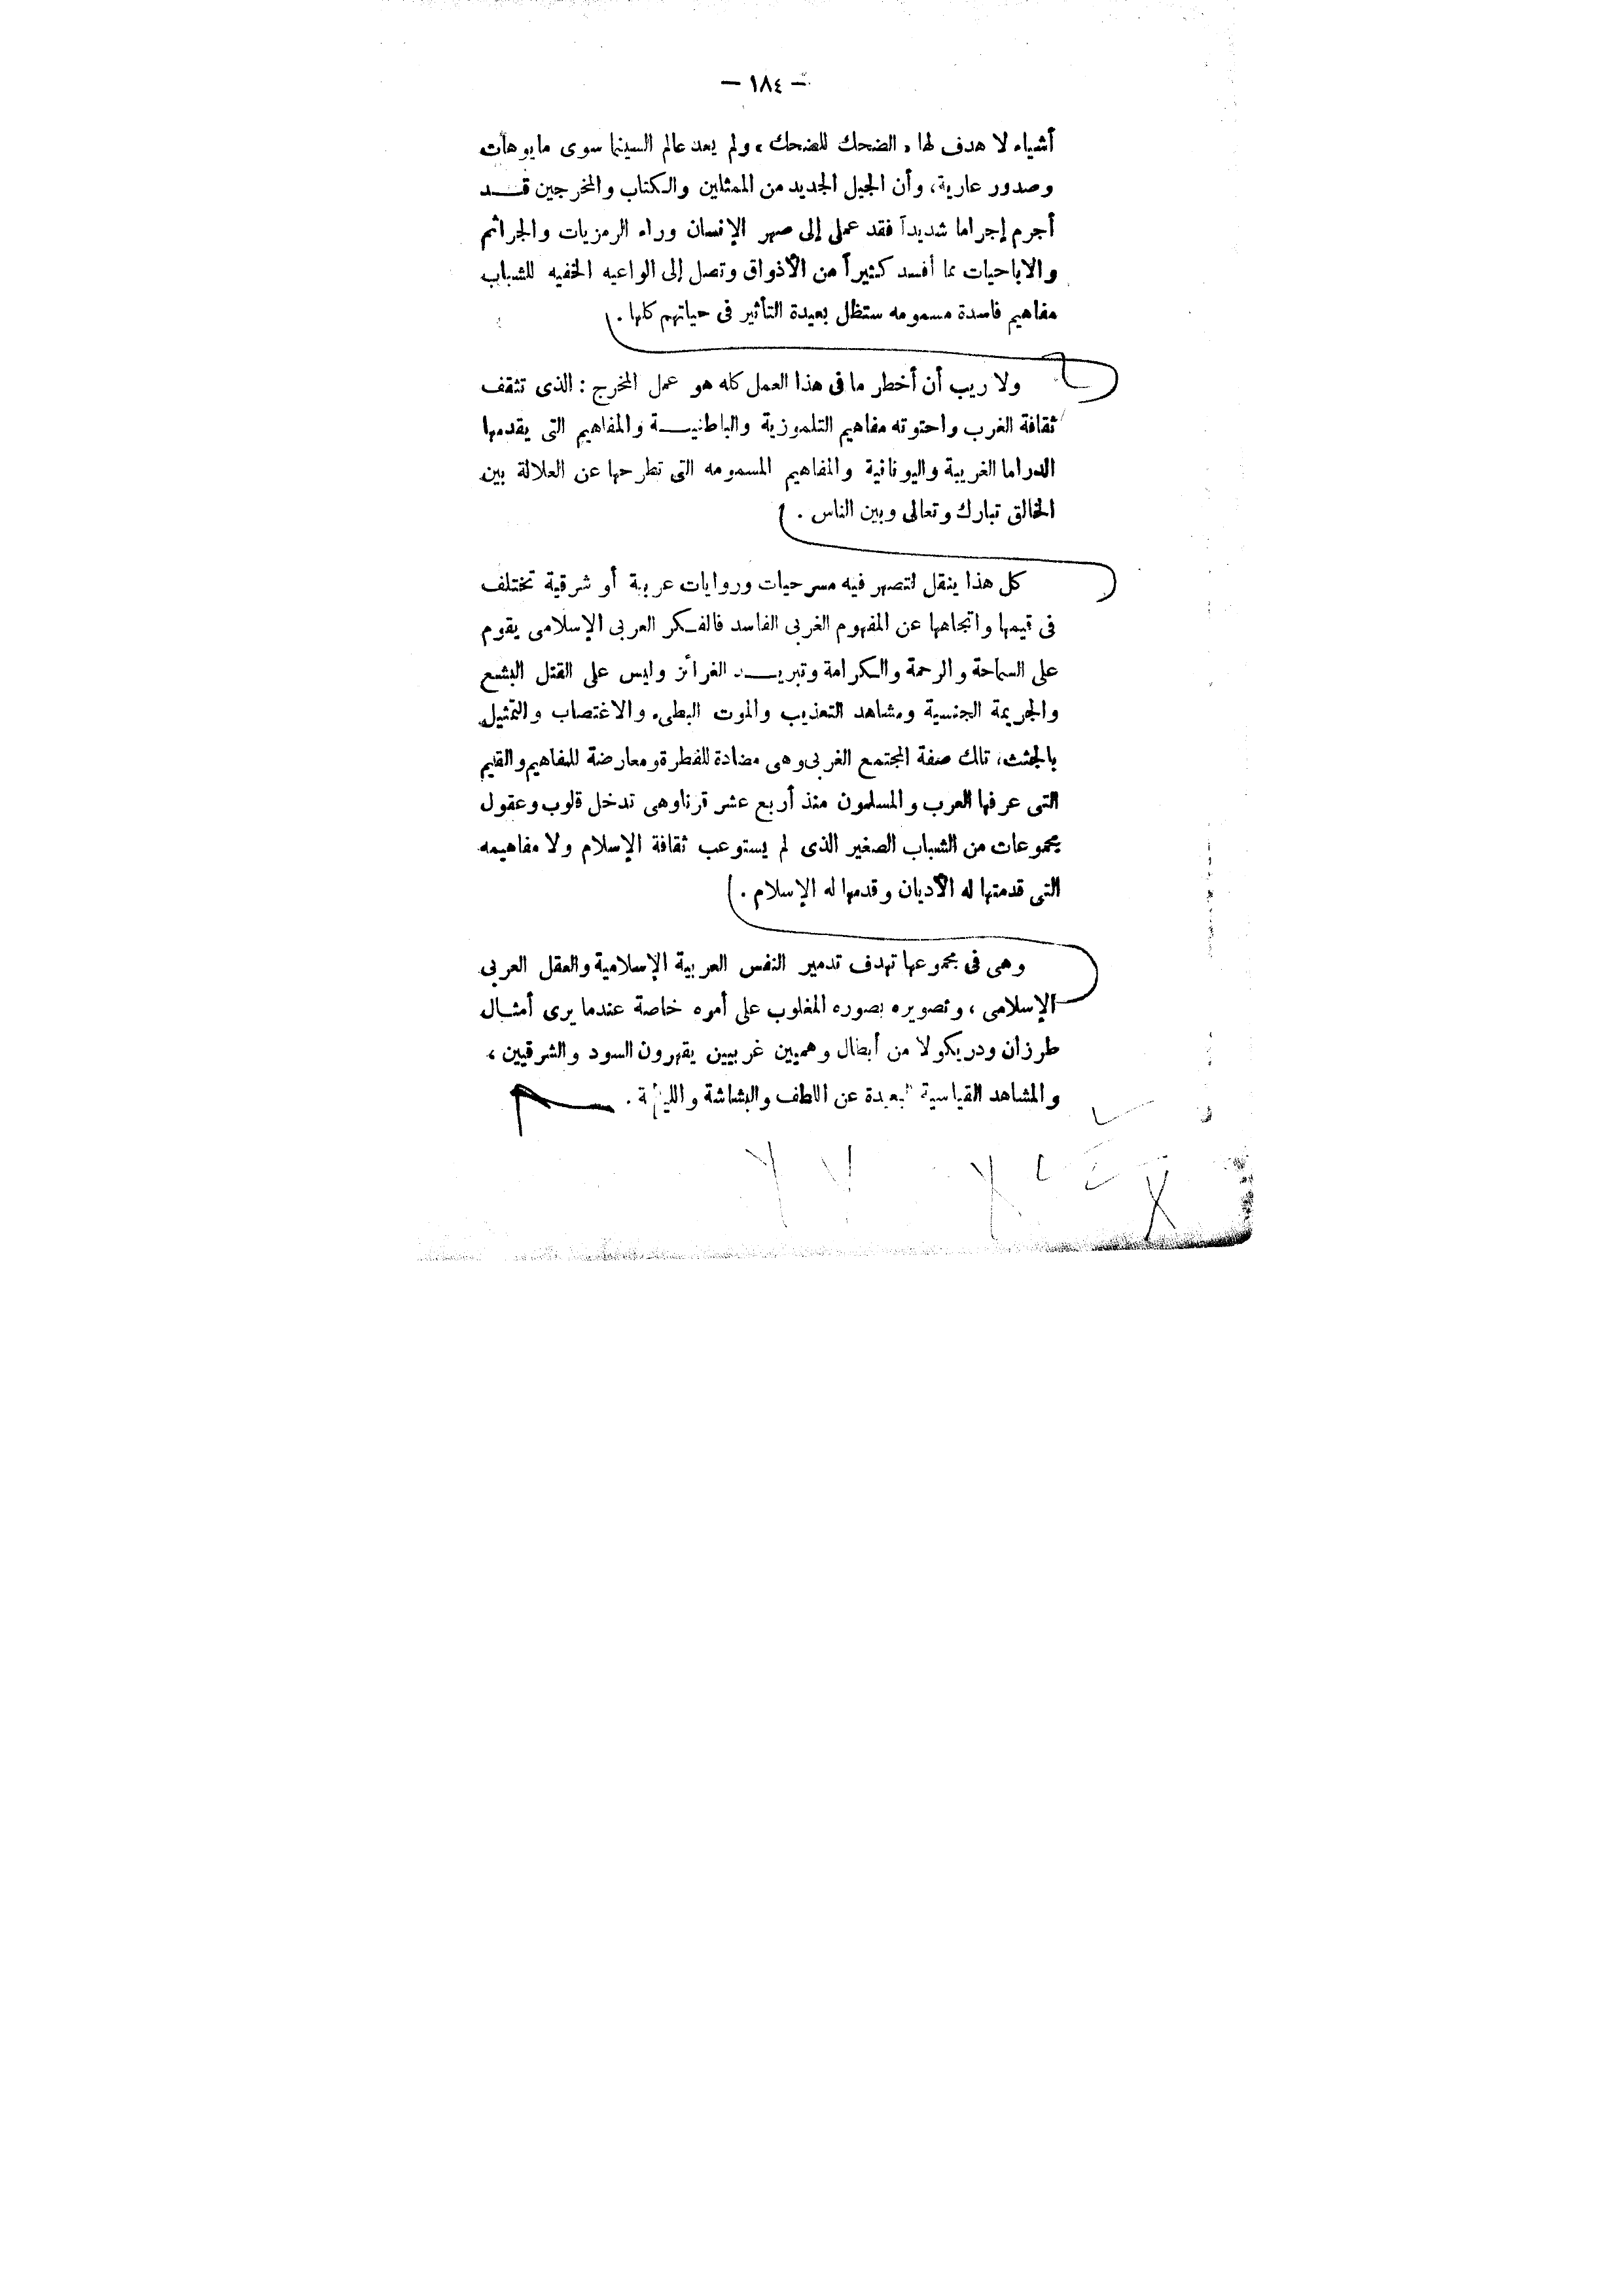 — ١٨٤ —
أشياء لا هدف لها «الضحك للضحك» ولم يعد عالم السينما سوى مايوهات
وصدور عارية، وأن الجيل الجديد من الممثلين والكتاب والمخرجين قد
أجرم إجراما شديداً فقد عمل إلى صهر الإنسان وراء الرمزيات والجرائم
والاباحيات مما أفسد كثيراً من الأذواق وتصل إلى الواعيه الخفيه للشباب
مفاهيم فاسدة مسمومه ستظل بعيدة التأثير فى حياتهم كلها .
ولا ريب أن أخطر ما فى هذا العمل كله هو عمل المخرج : الذى تثقف
ثقافة الغرب واحتوته مفاهيم التلموزية والباطنية والمفاهيم التى يقدمها
الدراما الغربية واليونانية والمفاهيم المسمومه التى تطرحها عن العلالة بين
الخالق تبارك وتعالى وبين الناس .
كل هذا ينقل لتصهر فيه مسرحيات وروايات عربية أو شرقية تختلف
فى قيمها واتجاهها عن المفهوم الغربى الفاسد فالفكر العربى الإسلامى يقوم
على السماحة والرحمة والكرامة وتبريد الغرائز وليس على القتل البشع
والجريمة الجنسية ومشاهد التعذيب والموت البطىء والاغتصاب والتمثيل
بالجثث، تلك صفة المجتمع الغربى وهى مضادة للفطرة ومعارضة للمفاهيم والقيم
التى عرفها العرب والمسلمون منذ أربع عشر قرنا وهى تدخل قلوب وعقول
مجموعات من الشباب الصغير الذى لم يستوعب ثقافة الإسلام ولا مفاهيمه
التى قدمتها له الأديان وقدمها له الإسلام .
وهى فى مجموعها تهدف تدمير النفس العربية الإسلامية والعقل العربى
الإسلامى ، وتصويره بصوره المغلوب على أمره خاصة عندما يرى أمثال
طرزان ودريكولا من أبطال وهميين غربيين يقهرون السود والشرقيين ،
والمشاهد القياسية البعيدة عن اللطف والبشاشة و .